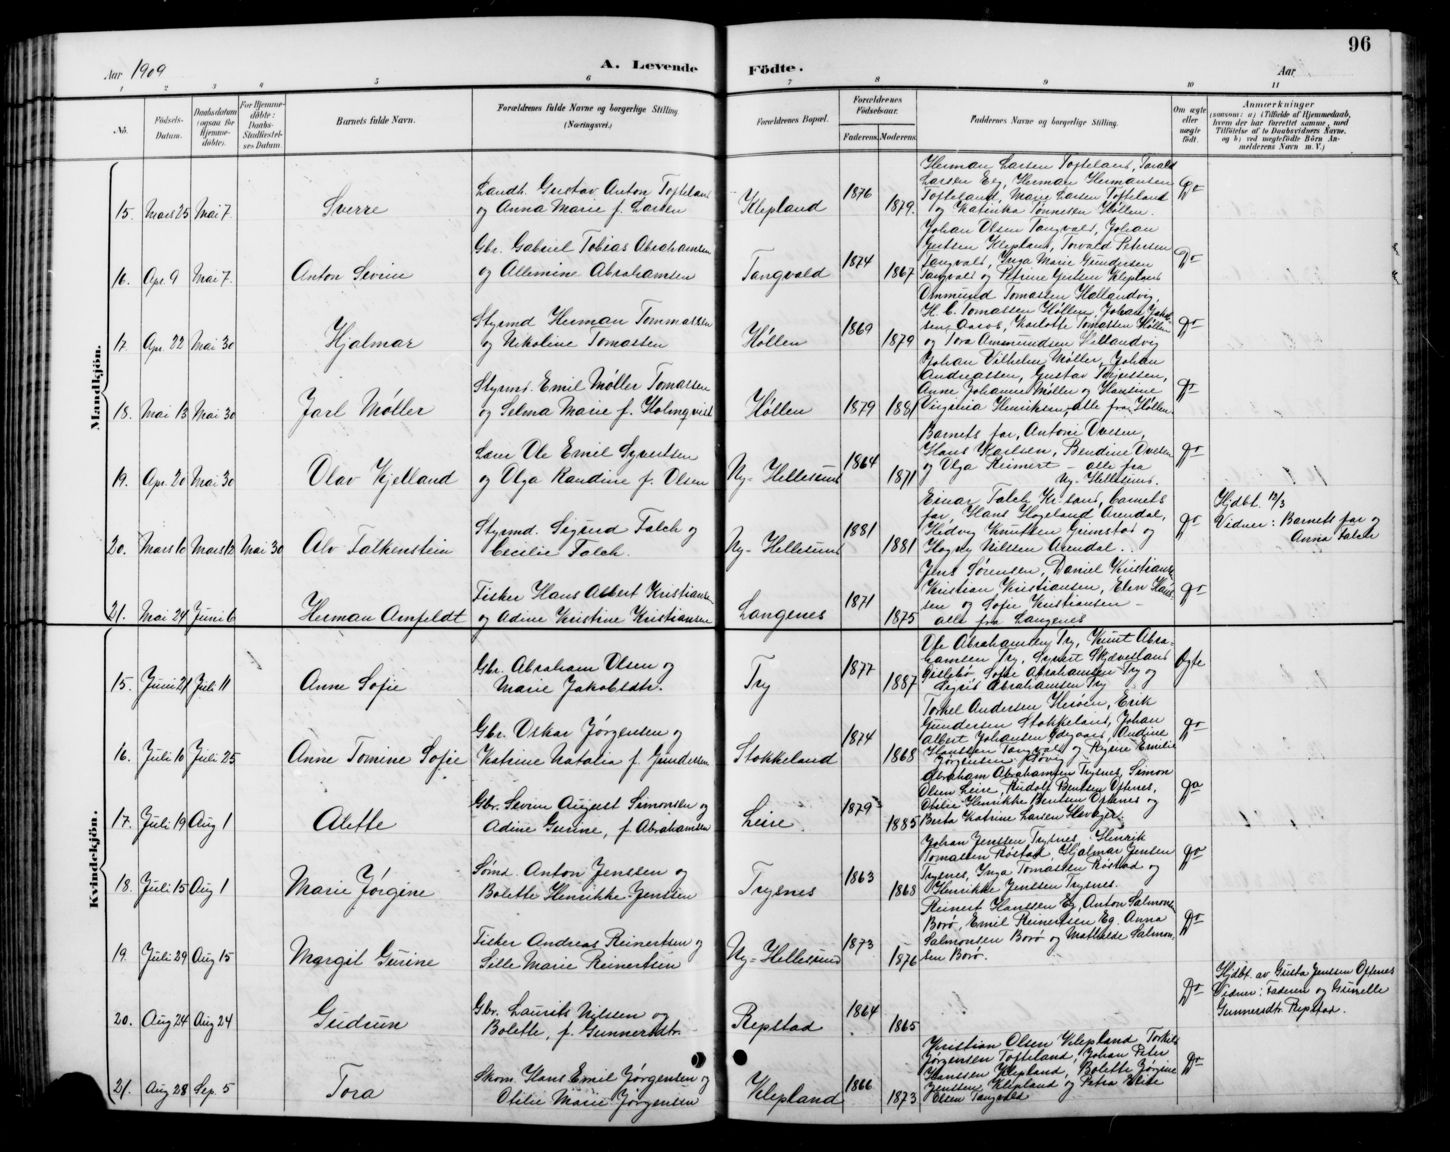 96
Aar 1909
A. Levende Födte.
Aar
1 2 3 4 5 6 7 8 9 10 11
No.
Födsels-Datum.
Daabsdatum (ogsaa for Hjemmedøbte).
For Hjemmedøbte: Daabs-Stadfæstelses Datum.
Barnets fulde Navn.
Forældrenes fulde Navne og borgerlige Stilling (Næringsvei.)
Forældrenes Bopæl.
Forældrenes Födselsaar.
Faderens. Moderens.
Faddernes Navne og borgerlige Stilling.
Om ægte eller uægte født.
Anmærkninger
(saasom: a) i Tilfælde af Hjemmedaab, hvem der har forrettet samme, med Tilføielse af to Daabsvidners Navne, og b) ved uægtefødte Börn Anmelderens Navn m. V.)
Mandkjön.
15. Mars 25 Mai 7. Sverre
Landh. Gustav Anton Tofteland
og Anna Marie f. Larsen
Klepland 1876 1879.
Herman Larsen Tofteland, Torald
Larsen Eg, Herman Hermansen
Tofteland, Marie Larsen Tofteland
og Katinka Tønnesen Høllen.
Do
16. Apr. 9 Mai 7. Anton Severin
Gbr. Gabriel Tobias Abrahamsen
og Allemine Abrahamsen
Tangvald 1874 1867
Johan Olsen Tangvald, Johan
Jentsen Klepland, Torvald Petersen
Tangvald, Inga Marie Gundersen
Tangvald og Petrine Jentsen Klepland
Do
17. Apr. 22 Mai 30 Hjalmar
Styrmd Herman Tommassen
og Nikoline Tomassen
Høllen 1869 1879
Ommund Tomassen Hallandvig,
H. C. Tomassen Høllen, Johan Jakobsen
Aaros, Karlotte Tomassen Høllen
og Tora Ommundsen Hellandvig
Do
18. Mai 13 Mai 30 Jarl Møller
Styrmd. Emil Møller Tomassen
og Selma Marie f. Holmqvist
Høllen 1879 1881
Johan Vilhelm Møller, Johan
Andreassen, Gustav Terjessen,
Anne Johanne Møller og Hansine
Virginia Henriksen, alle fra Høllen.
Do
19. Apr. 20 Mai 30 Olav Kjelland
Lærer Ole Emil Syvertsen
og Olga Randine f. Olsen
Ny-Hellesund 1864 1871
Barnets far, Antoni Ovesen,
Hans Karlsen, Bendine Ovesen
og Olga Reimert – alle fra
Ny-Hellesund.
Do
20. Mars 10 Mars 12 Mai 30 Alv Falkenstein
Styrmd. Sigurd Falch og
Cecilie Falch.
Ny-Hellesund 1881 1881
Einar Falch Kr.sand, barnets
far, Hans Hageland Arendal,
Hedvig Knutsen Grimstad og
Hagny Nilssen Arendal.
Do
Hjdbt. 12/3
Vidner: Barnets far og
Anna Falch
21. Mai 24 Juni 6 Herman Arnfeldt
Fisker Hans Albert Kristiansen
og Adine Kristine Kristiansen
Langenes 1871 1875
Jens Sørensen, Daniel Kristiansen,
Kristian Kristiansen, Elen Hanssen
og Sofie Kristiansen –
alle fra Langenes
Do
Kvindekjön.
15. Juni 21 Juli 11 Anne Sofie
Gbr. Abraham Olsen og
Marie Jakobsdtr.
Try 1877 1887
Ole Abrahamsen Try, Knut Abrahamsen
Try, Syvert Skjævesland
Sofie Abrahamsen Try og
Sigrid Abrahamsen Try
Ægte
16. Juli 10 Juli 25 Anne Tomine Sofie
Gbr. Oskar Jørgensen og
Katrine Natalia f. Gundersen
Stokkeland 1874 1868
Torkel Andersen Herøien, Erik
Gundersen Stokkeland, Johan
Albert Johansen Ødegaard, Andine
Hanssen Tangvald og Regine Emilie
Jørgensen
Do
17. Juli 19 Aug 1 Alette
Gbr. Severin August Simonsen og
Adine Gurine, f. Abrahamsen
Leire. 1879 1885
Abraham Abrahamsen Trysnes, Simon
Olsen Leire, Rudolf Bentsen Oftenes,
Otilie Henrikke Bentsen Oftenes og
Berta Katrine Larsen
Do
18. Juli 15 Aug 1 Marie Jørgine
Sømd Anton Jenssen og
Bolette Henrikke Jenssen
Trysnes 1863 1868
Johan Jenssen Trysnes, Henrik
Tomassen Røstad, Hjalmar Jensen
Trysnes, Inga Tomassen Røstad og
Henrikke Jenssen Trysnes.
Do
19. Juli 29 Aug 15 Margit Gurine
Fisker Andreas Reinertsen og
Sille Marie Reinertsen
Ny-Hellesund 1873 1876
Reinert Hanssen Eg, Anton Salmonsen
Borø, Emil Reinertsen Eg, Anna
Salmonsen Borø og Mathilde Salmonsen
Borø.
Do
20. Aug 24 Aug 24 Gudrun
Gbr. Laurits Nilssen og
Bolette, f. Gunnersdtr.
Repstad 1864 1865
Do
Hjdbt. av Gusta Jenssen Oftenes
Vidner: Faderen og Gunelle
Gunnersdtr. Repstad.
21. Aug 28 Sep. 5 Tora
Skom. Hans Emil Jørgensen og
Otilie Marie Jørgensen
Klepland 1866 1873
Kristian Olsen Klepland, Torkel
Jørgensen Tofteland, Johan Peter
Hanssen Klepland, Bolette Jørgine
Jenssen Klepland og Petra Elise
Olsen Tangvald
Do